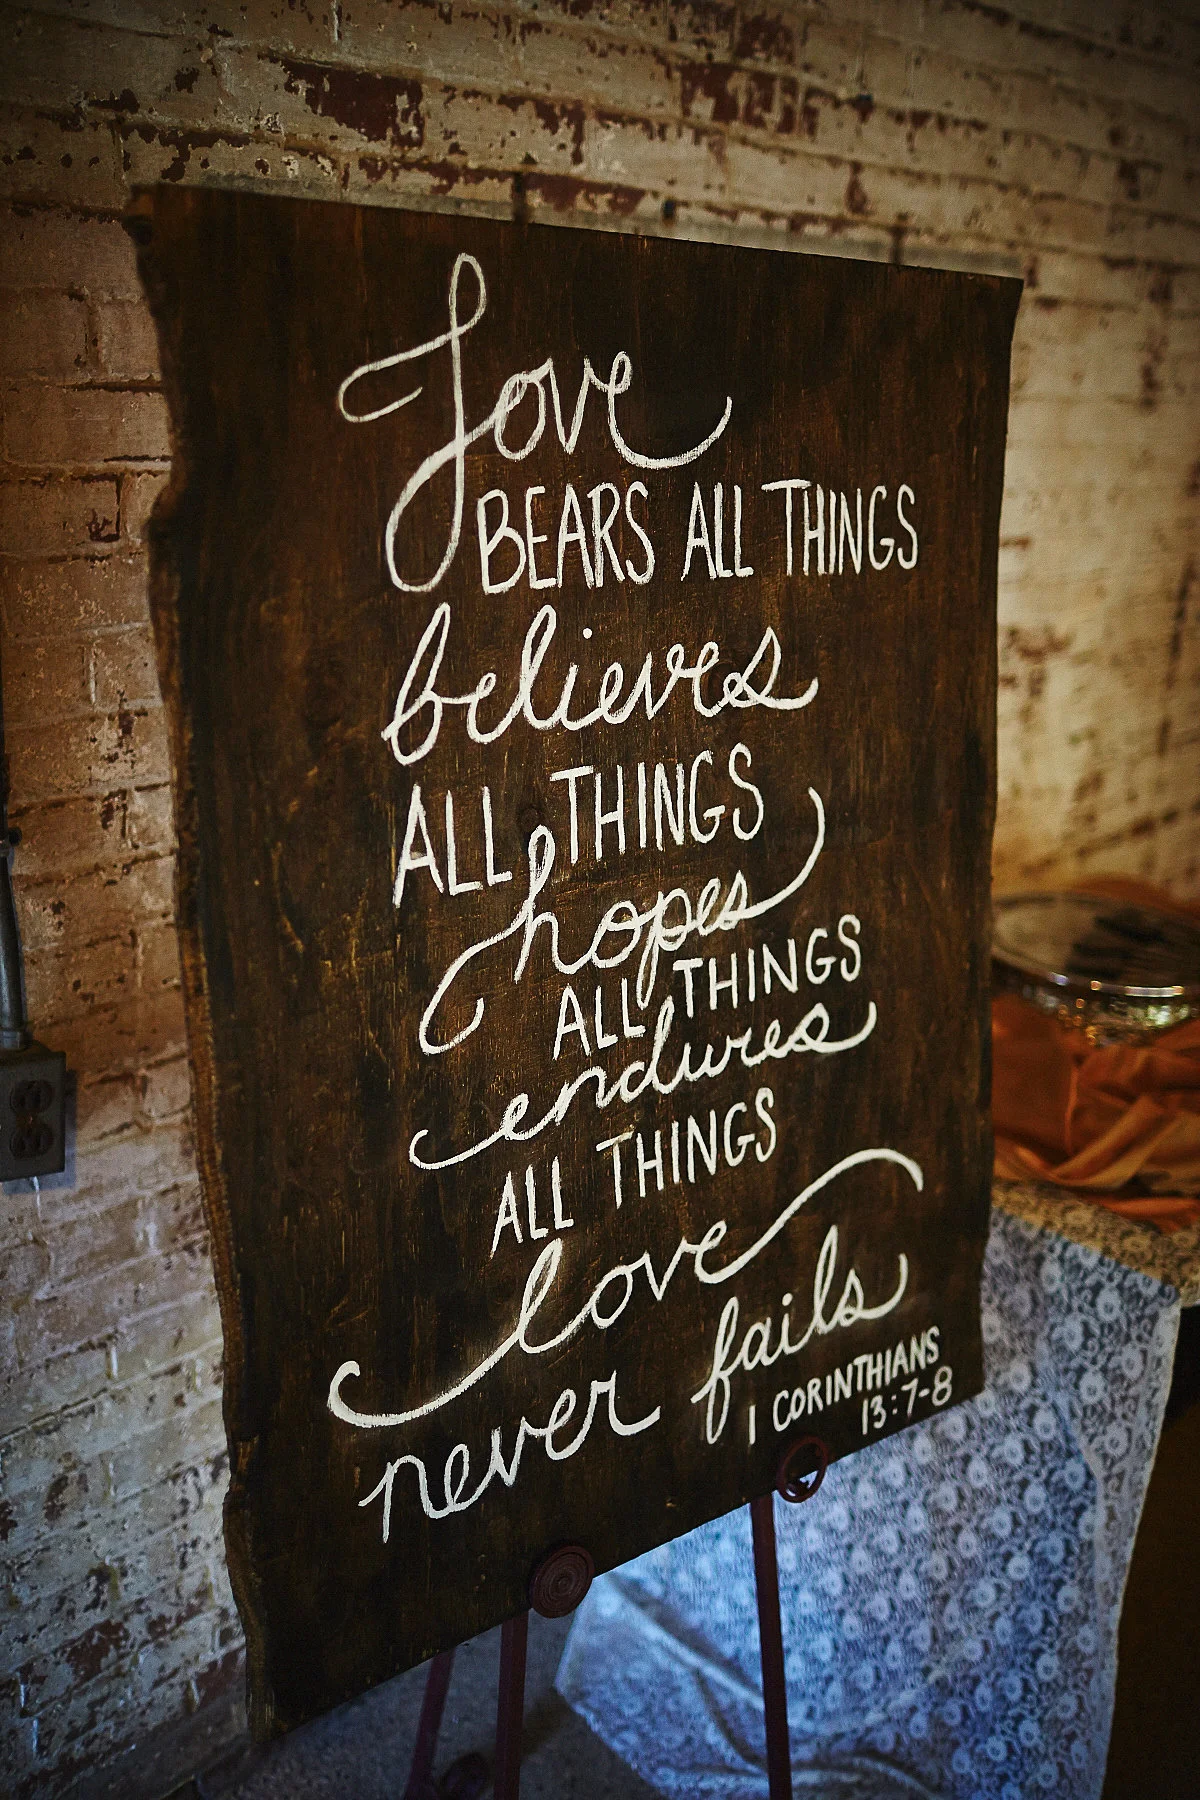 Love
BEARS ALL THINGS
believes
ALL THINGS
hopes
ALL THINGS
endures
ALL THINGS
love
never fails
1 CORINTHIANS
13:7-8